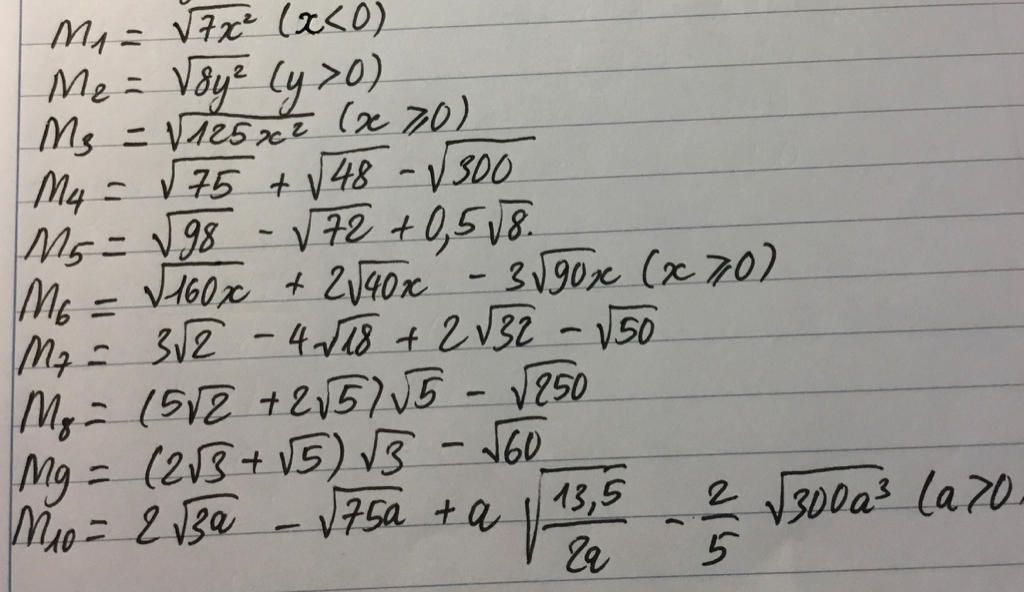 M₁ = √7x² (x<0)
M₂ = √8y² (y>0)
M₃ = √125x² (x ⩾0)
M₄ = √75 + √48 - √300
M₅ = √98 - √72 + 0,5√8.
M₆ = √160x + 2√40x - 3√90x (x ⩾0)
M₇ = 3√2 - 4√18 + 2√32 - √50
M₈ = (5√2 + 2√5)√5 - √250
M₉ = (2√3 + √5)√3 - √60
M₁₀ = 2√3a - √75a + a√(13,5/2a) - 2/5 √300a³ (a>0.